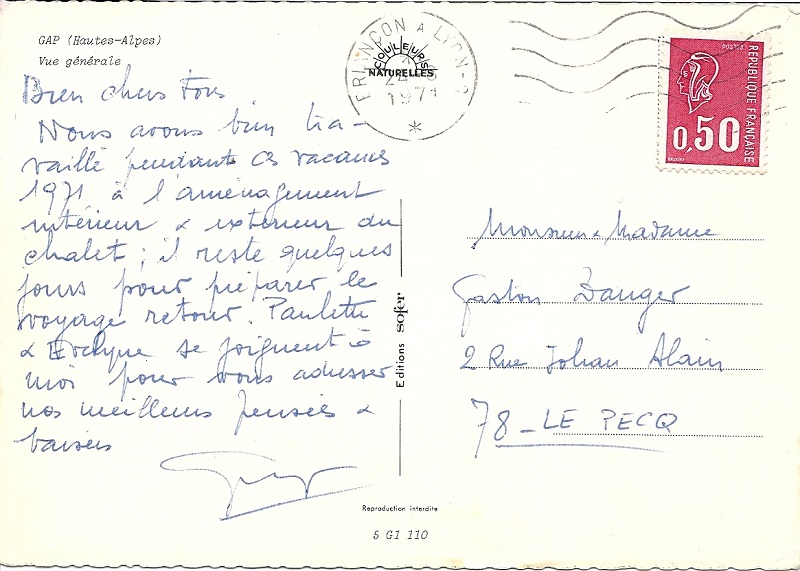 GAP (Hautes-Alpes)
Vue générale
Bien chers Tous
Nous avons bien tra-
vaillé pendant ces vacances
1971 à l'aménagement
intérieur & extérieur du
chalet ; il reste quelques
jours pour préparer le
voyage retour. Paulette
& Evelyne se joignent à
moi pour vous adresser
nos meilleurs pensées &
baisers
BRIANÇON A LYON-2
1971
COULEURS
NATURELLES
POSTES
RÉPUBLIQUE FRANÇAISE
0,50
Monsieur & Madame
Gaston Danger
2 Rue Johan Alain
78 - LE PECQ
Editions sofer
Reproduction interdite
5 G1 110